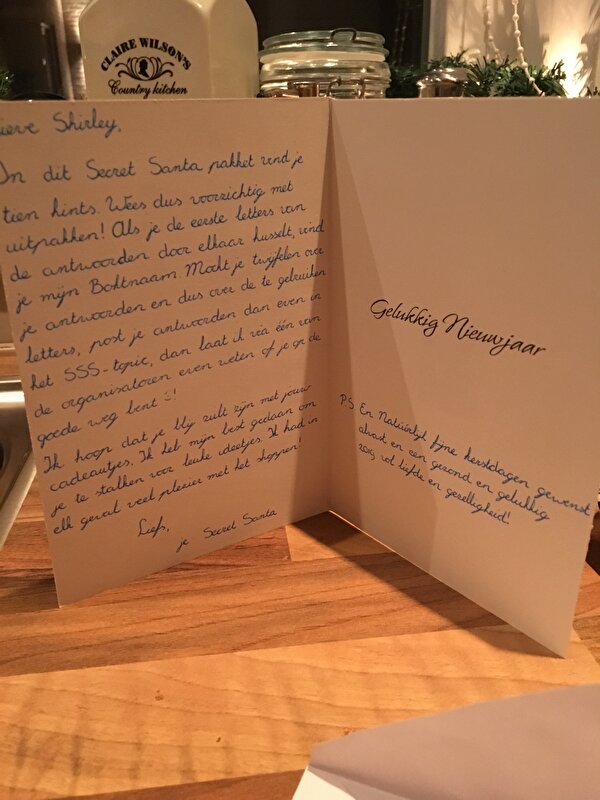 CLAIRE WILSON'S
Country kitchen
ieve Shirley,
In dit Secret Santa pakket vind je
tien hints. Wees dus voorzichtig met
uitpakken! Als je de eerste letters van
de antwoorden door elkaar husselt, vind
je mijn Boktnaam. Mocht je twijfelen over
je antwoorden en dus over de te gebruiken
letters, post je antwoorden dan even in
het SSS-topic, dan laat ik via één van
de organisatoren even weten of je op de
goede weg bent :)!
Ik hoop dat je blij zult zijn met jouw
cadeautjes. Ik heb mijn best gedaan om
je te stalken voor leuke ideetjes. Ik had in
elk geval veel plezier met het shoppen!
Liefs,
je Secret Santa
Gelukkig Nieuwjaar
P.S En Natuurlijk fijne kerstdagen gewenst
alvast en een gezond en gelukkig
2019 vol liefde en gezelligheid!